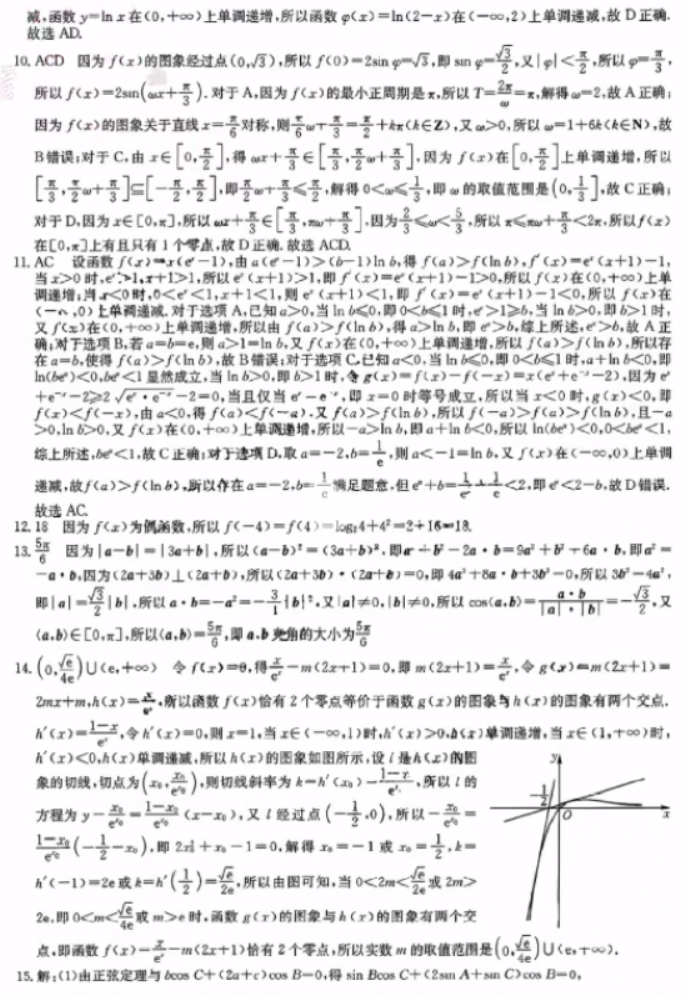 减,函数y=ln x在(0,+∞)上单调递增,所以函数φ(x)=ln(2−x)在(−∞,2)上单调递减,故D正确.
故选AD.
10. ACD 因为f(x)的图象经过点(0,√3),所以f(0)=2sin φ=√3,即sin φ=√3/2,又|φ|<π/2,所以φ=π/3,
所以f(x)=2sin(ωx+π/3).对于A,因为f(x)的最小正周期是π,所以T=2π/ω=π,解得ω=2,故A正确;
因为f(x)的图象关于直线x=π/6对称,则π/6ω+π/3=π/2+kπ(k∈Z),又ω>0,所以ω=1+6k(k∈N),故
B错误;对于C,由x∈[0,π/2],得ωx+π/3∈[π/3,π/2ω+π/3],因为f(x)在[0,π/2]上单调递增,所以
[π/3,π/2ω+π/3]⊆[−π/2,π/2],即π/2ω+π/3≤π/2,解得0<ω≤1/3,即ω的取值范围是(0,1/3],故C正确;
对于D,因为x∈[0,π],所以ωx+π/3∈[π/3,πω+π/3],因为2/3≤ω<5/3,所以π≤πω+π/3<2π,所以f(x)
在[0,π]上有且只有1个零点,故D正确.故选ACD.
11. AC 设函数f(x)=x(eˣ−1),由a(eᵃ−1)>(b−1)ln b,得f(a)>f(ln b),f′(x)=eˣ(x+1)−1,
当x>0时,eˣ>1,x+1>1,所以eˣ(x+1)>1,即f′(x)=eˣ(x+1)−1>0,所以f(x)在(0,+∞)上单
调递增;当x<0时,0<eˣ<1,x+1<1,则eˣ(x+1)<1,即f′(x)=eˣ(x+1)−1<0,所以f(x)在
(−∞,0)上单调递减.对于选项A,已知a>0,当ln b≤0,即0<b≤1时,eᵃ>1≥b,当ln b>0,即b>1时,
又f(x)在(0,+∞)上单调递增,所以由f(a)>f(ln b),得a>ln b,即eᵃ>b,综上所述,eᵃ>b,故A正
确;对于选项B,若a=b=e,则a>1=ln b,又f(x)在(0,+∞)上单调递增,所以f(a)>f(ln b),所以存
在a=b,使得f(a)>f(ln b),故B错误;对于选项C,已知a<0,当ln b≤0,即0<b≤1时,a+ln b<0,即
ln(beᵃ)<0,beᵃ<1显然成立,当ln b>0,即b>1时,令g(x)=f(x)−f(−x)=x(eˣ+e⁻ˣ−2),因为eˣ
+e⁻ˣ−2≥2√(eˣ·e⁻ˣ)−2=0,当且仅当eˣ=e⁻ˣ,即x=0时等号成立,所以当x<0时,g(x)<0,即
f(x)<f(−x),由a<0,得f(a)<f(−a).又f(a)>f(ln b),所以f(−a)>f(a)>f(ln b),且−a
>0,ln b>0,又f(x)在(0,+∞)上单调递增,所以−a>ln b,即a+ln b<0,所以ln(beᵃ)<0,0<beᵃ<1,
综上所述,beᵃ<1,故C正确;对于选项D,取a=−2,b=1/e,则a<−1=ln b,又f(x)在(−∞,0)上单调
递减,故f(a)>f(ln b),所以存在a=−2,b=1/e满足题意,但eᵃ+b=1/e²+1/e<2,即eᵃ<2−b,故D错误.
故选AC.
12. 18 因为f(x)为偶函数,所以f(−4)=f(4)=log₂4+4²=2+16=18.
13. 5π/6 因为|a−b|=|3a+b|,所以(a−b)²=(3a+b)²,即a²+b²−2a·b=9a²+b²+6a·b,即a²=
−a·b,因为(2a+3b)⊥(2a+b),所以(2a+3b)·(2a+b)=0,即4a²+8a·b+3b²=0,所以3b²=4a²,
即|a|=√3/2|b|,所以a·b=−a²=−3/4|b|²,又|a|≠0,|b|≠0,所以cos⟨a,b⟩=a·b/(|a|·|b|)=−√3/2,又
⟨a,b⟩∈[0,π],所以⟨a,b⟩=5π/6,即a,b夹角的大小为5π/6.
14. (0,√e/4e)∪(e,+∞) 令f(x)=0,得x/eˣ−m(2x+1)=0,即m(2x+1)=x/eˣ,令g(x)=m(2x+1)=
2mx+m,h(x)=x/eˣ,所以函数f(x)恰有2个零点等价于函数g(x)的图象与h(x)的图象有两个交点.
h′(x)=(1−x)/eˣ,令h′(x)=0,则x=1,当x∈(−∞,1)时,h′(x)>0,h(x)单调递增,当x∈(1,+∞)时,
h′(x)<0,h(x)单调递减,所以h(x)的图象如图所示,设l是h(x)的图
象的切线,切点为(x₀,x₀/eˣ⁰),则切线斜率为k=h′(x₀)=(1−x₀)/eˣ⁰,所以l的
方程为y−x₀/eˣ⁰=(1−x₀)/eˣ⁰(x−x₀),又l经过点(−1/2,0),所以−x₀/eˣ⁰=
(1−x₀)/eˣ⁰(−1/2−x₀),即2x₀²+x₀−1=0,解得x₀=−1或x₀=1/2,k=
h′(−1)=2e或k=h′(1/2)=√e/2e,所以由图可知,当0<2m<√e/2e或2m>
2e,即0<m<√e/4e或m>e时,函数g(x)的图象与h(x)的图象有两个交
点,即函数f(x)=x/eˣ−m(2x+1)恰有2个零点,所以实数m的取值范围是(0,√e/4e)∪(e,+∞).
y
−1/2
O
x
15. 解:(1)由正弦定理与bcos C+(2a+c)cos B=0,得sin Bcos C+(2sin A+sin C)cos B=0,